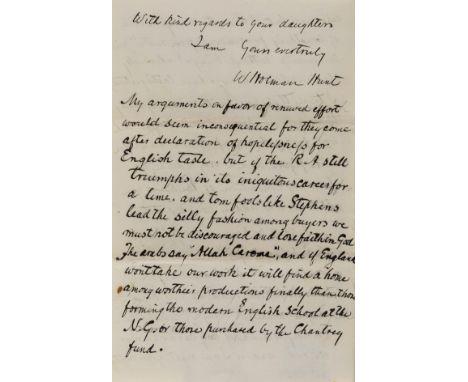 With kind regards to your daughters
I am Yours ever truly
W Holman Hunt
My arguments in favor of renewed effort
would seem inconsequential for they come
after declaration of hopelessness for
English taste. but if the R.A. still
triumphs in its iniquitous career for
a time. and tom fools like Stephens
lead the silly fashion among buyers we
must not be discouraged and lose faith in God
The arabs say "Allah Careme", and if England
wont take our work it will find a home
among worthier productions finally than those
forming the modern English School at the
N.G. or those purchased by the Chantrey
fund.